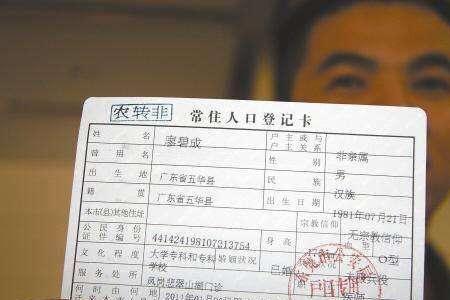 农转非 常住人口登记卡
姓名 廖碧成 户主或与户主关系 非亲属
曾用名 性别 男
出生地 广东省五华县 民族 汉族
籍贯 广东省五华县 出生日期 1981年07月21日
本市(县)其他住址 宗教信仰 无宗教信仰
公民身份证件编号 441424198107213754 身高 O型
文化程度 大学专科和专科学校 婚姻状况 已婚
服务处所